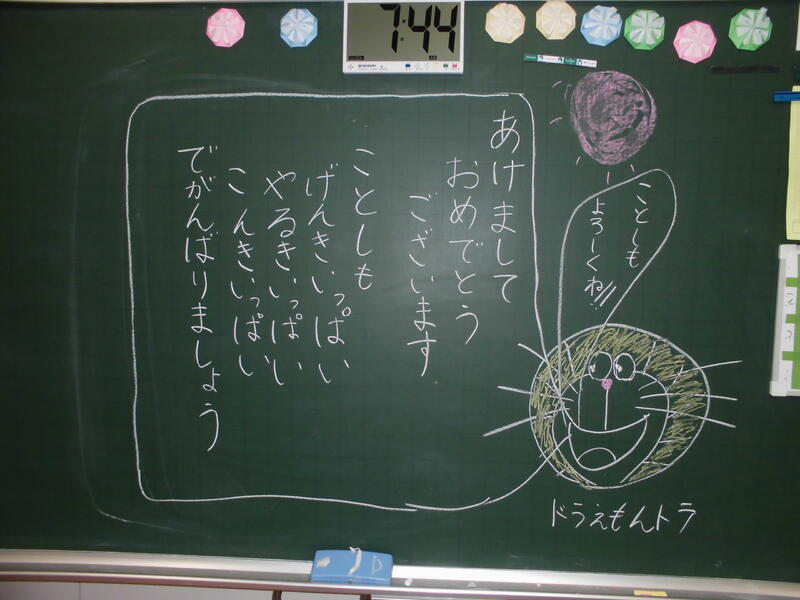 7:44
あけまして
おめでとう
ございます.
ことしも
げんきいっぱい
やるきいっぱい
こんきいっぱい
でがんばりましょう
ことしも
よろしくね!!
ドラえもんトラ